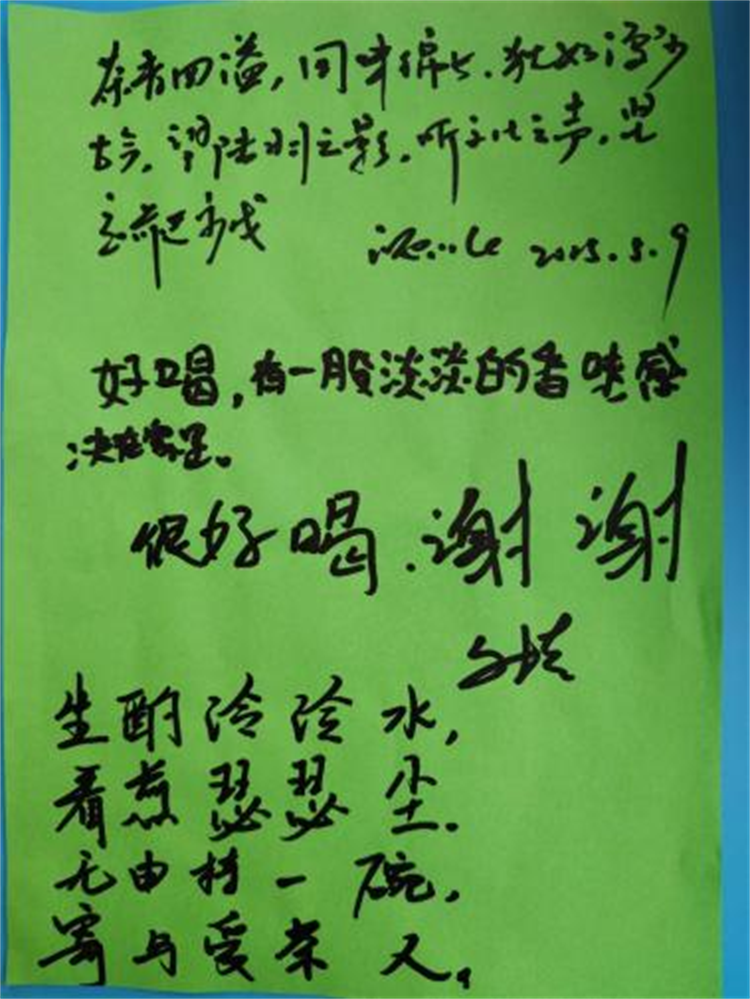 茶香四溢，回味绵长，犹如浮沙
古今，望陆羽之影，听文化之声，是
2025.5.9
好喝，有一股淡淡的香味感
决非常足。
很好喝.谢谢
生酌冷泠水，
看煮瑟瑟尘.
无由持一碗，
寄与爱茶人。